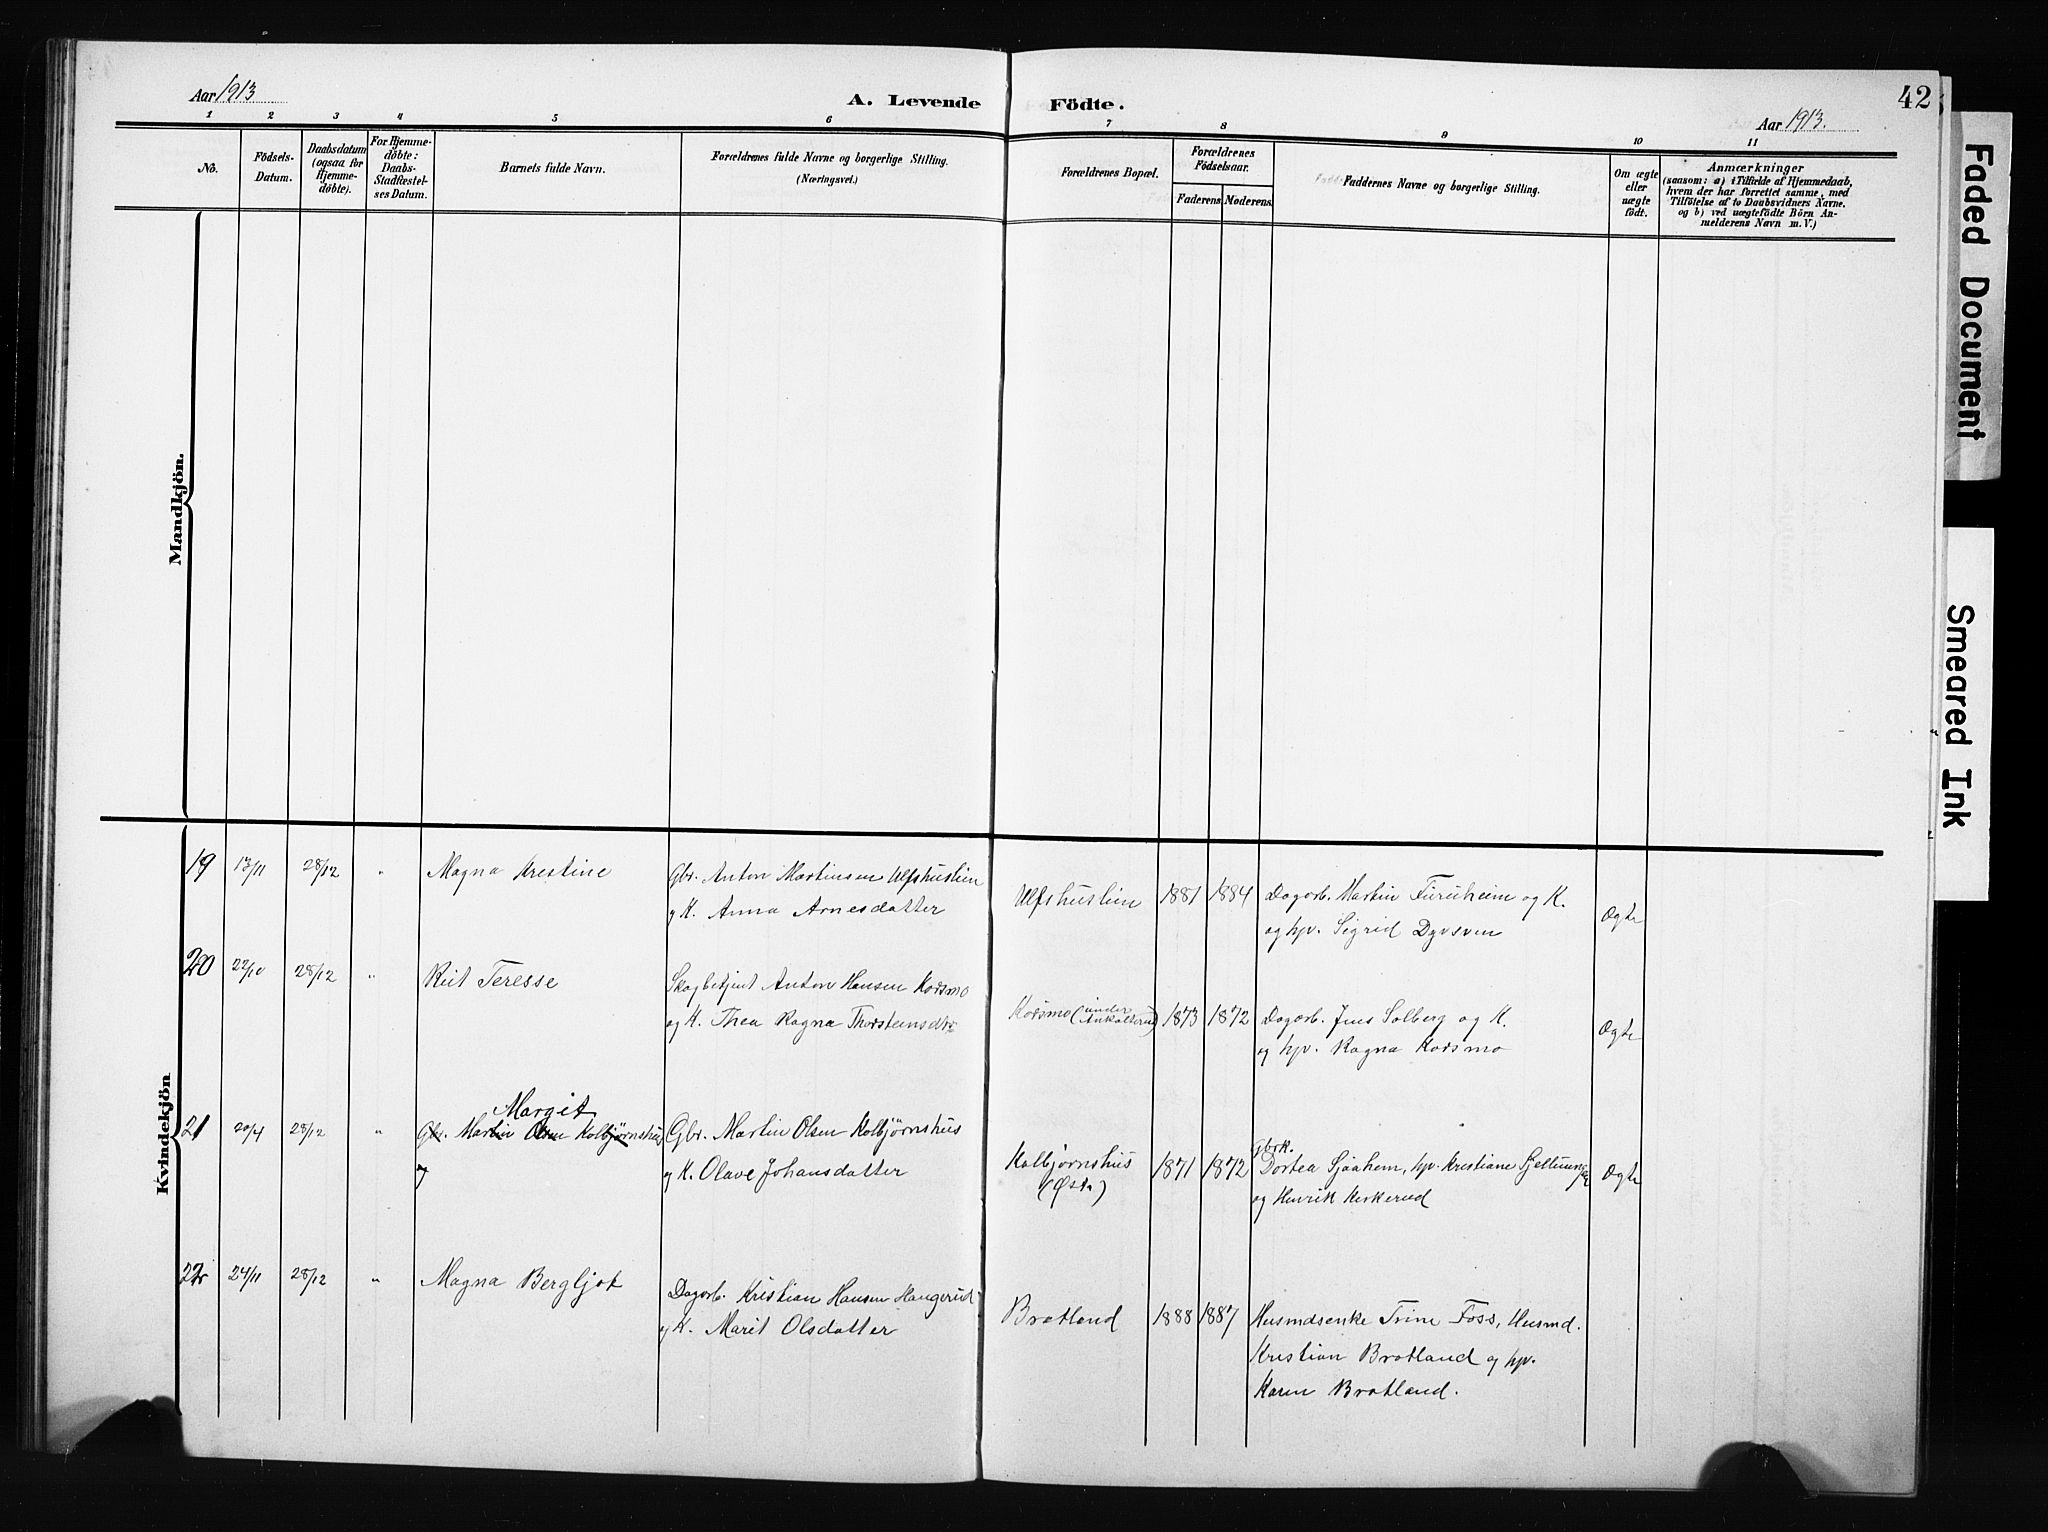 42
Aar 1913
A. Levende Födte.
Aar 1913.
1 2 3 4 5 6 7 8 9 10 11
No.
Födsels-
Datum.
Daabsdatum
(ogsaa for
Hjemme-
döbte).
For Hjemme-
döbte:
Daabs-
Stadfæstel-
ses Datum.
Barnets fulde Navn.
Forældrenes fulde Navne og borgerlige Stilling.
(Næringsvei.)
Forældrenes Bopæl.
Forældrenes
Födselsaar.
Faderens. Moderens.
Faddernes Navne og borgerlige Stilling.
Om ægte
eller
uægte
födt.
Anmærkninger
(saasom: a) i Tilfælde af Hjemmedaab,
hvem der har forrettet samme, med
Tilföielse af to Daabsvidners Navne,
og b) ved uægtefödte Börn An-
melderens Navn m. V.)
Mandkjön.
Kvindekjön
19 13/11 28/12 " Magna Krestine
Gbr. Anton Martinsen Ulfshuslien
og K. Anna Arnesdatter
Ulfshuslien 1881 1884
Dagarb. Martin Furuheim og K.
og hp. Sigrid Dyvsven
Ægte
20 22/10 28/12 " Rut Teresse
Skogbetjent Anton Hansen Korsmo
og K. Thea Ragna Thorsteinsdtr.
Korsmo (under
Ankalterud) 1873 1872
Dagarb. Jens Solberg og K.
og hp. Ragna Korsmo
Ægte
21 20/4 28/12 " Margit
Gbr. Martin Olsen Kolbjørnshus
og
Gbr. Martin Olsen Kolbjørnshus
og K. Olave Johansdatter
Kolbjørnshus
(Østr) 1871 1872
Gbrk.
Dortea Sjaahem, hp. Kristiane
og Henrik Kirkerud
Ægte
22 24/11 28/12 " Magna Bergljot
Dagarb. Kristian Hansen Haugerud
og K. Marit Olsdatter
Bratland 1888 1887
Husmdsenke Trine Foss, Husmd.
Kristian Bratland og hp.
Karen Bratland.
Faded Document
Smeared Ink